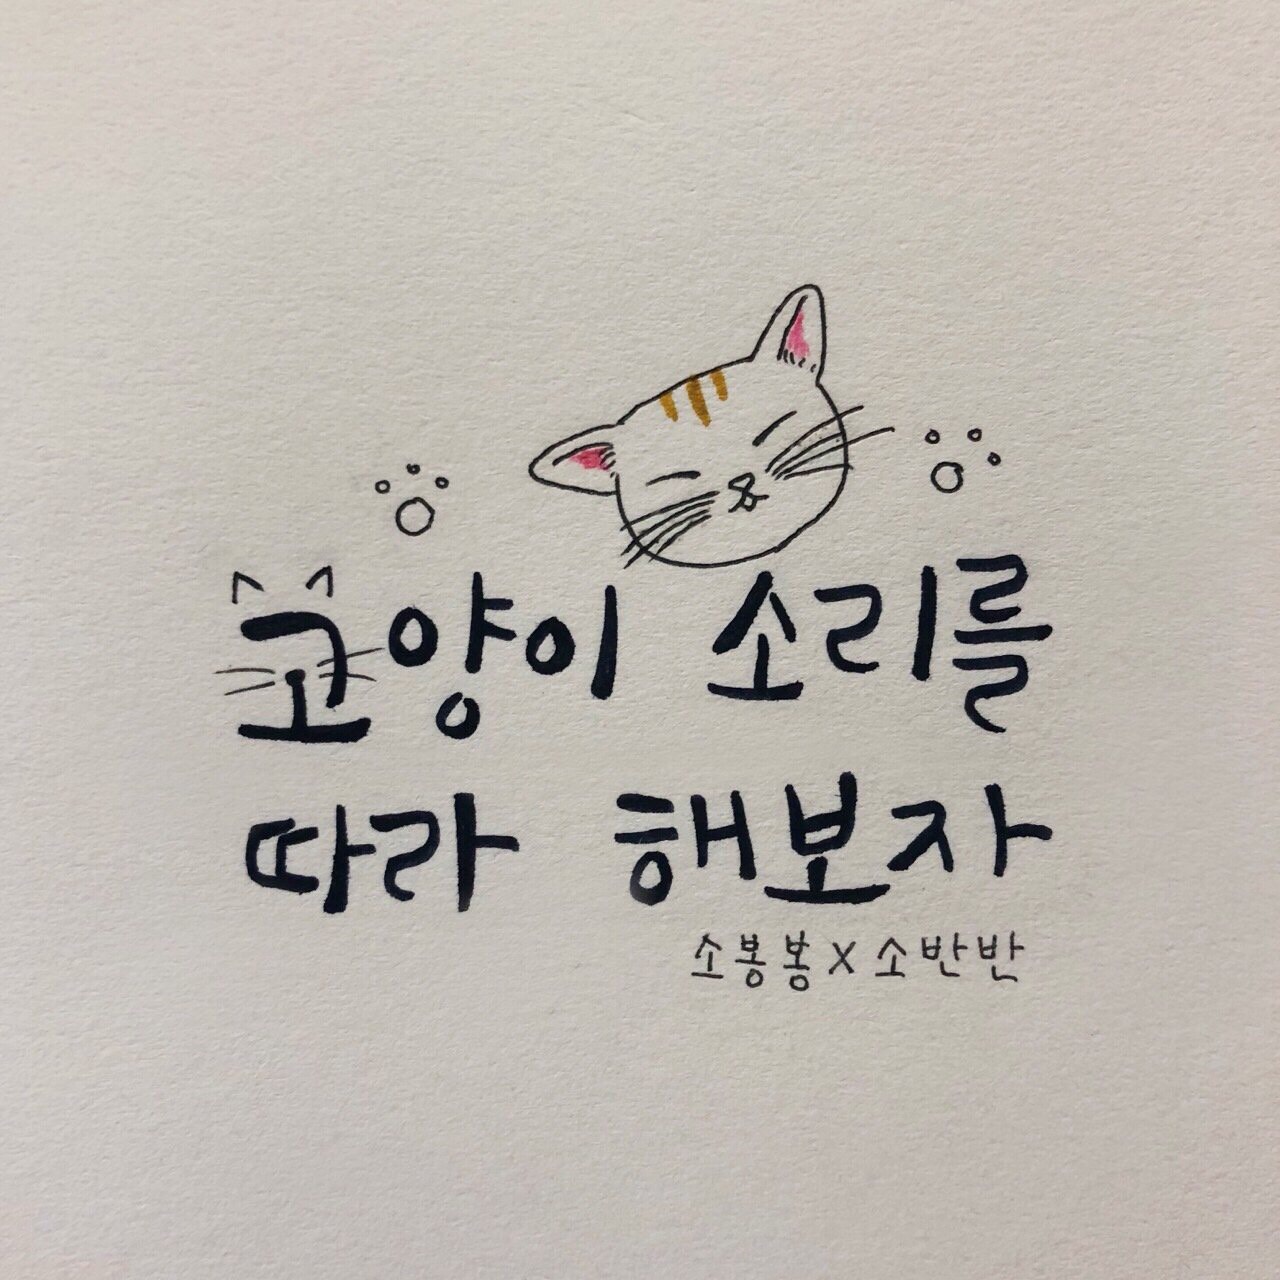 고양이 소리를
따라 해보자
소봉봉 X 소반반